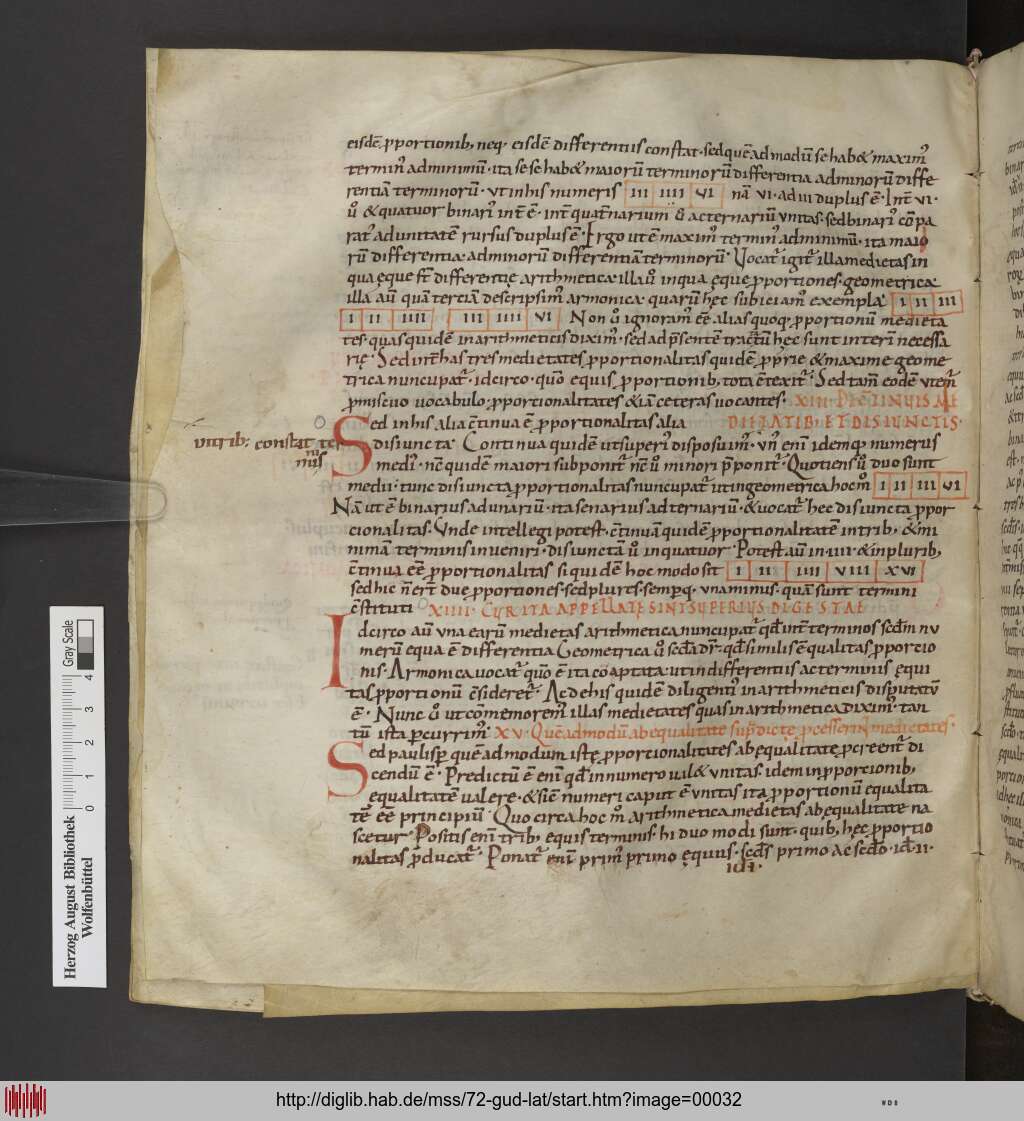 eisdē ꝓportionib; neq; eisdē differentiis constat· sed quē ad modū se habet maxim᾽
termin᾽ ad minimū· ita se se habet maiorū terminorū differentia ad minorū diffe
rentiā terminorū· ut in his numeris III IIII VI nā VI· ad III duplus ē· Int̄ VI·
ū & quatuor binari᾽ int̄ ē· int̄ quat̄narium ū ac ternariū unitas· sed binari᾽ cōpa
rat᾽ ad unitatē rursus duplus ē· Ergo ut ē maxim᾽ termin᾽ ad minimū· ita maio
rū differentia ad minorū differentiā terminorū· Vocat᾽ igit᾽ illa medietas in
qua ęque st̄ differentię arithmetica· illa ū in qua ęque ꝓportiones· geometrica·
illa aū quā terciā descripsim᾽ armonica· quarū hęc subiciam᾽ exempla· I II III
I II IIII III IIII VI Non ū ignoram᾽ eē alias quoq; ꝓportionū medieta
tes· quas quidē in arithmeticis diximꝰ· sed ad p̄sentē tractū hęc sunt interī necessa
rię· Sed int̄ has tres medietates ꝓportionalitas quidē ꝓprie & maxime geome
trica nuncupat᾽· idcirco· quō equis ꝓportionib; tota c̄texit᾽· Sed tam̄ eodē utem᾽
ꝓmiscuo uocabulo ꝓportionalitates & iā ceteras uocantes· XIII· DE C̄TINVIS ME
Sed in his alia c̄tinua ē ꝓportionalitas alia DIETATIB; ET DISIVNCTIS·
ut in trib; constat ter
minis
disiuncta· Continua quidē ut superi᾽ disposuim᾽· Vn᾽ enī idemq; numerus
medi᾽· n̄c quidē maiori subponit᾽ n̄c ū minori p̄ponit᾽· Quotiens ū duo sunt
medii· tunc disiuncta ꝓportionalitas nuncupat᾽ ut in geometrica hoc m̊ I II III VI
Nā ut ē binarius ad unariū· ita senarius ad ternariū· & uocat᾽ hęc disiuncta ꝓpor
cionalitas· Vnde intellegi potest· c̄tinuā quidē ꝓportionalitatē in trib; & mi
nimā terminis inueniri· disiunctā ū in quatuor· Potest aū in IIII· & in plurib;
c̄tinua eē ꝓportionalitas si quidē hoc modo sit I II IIII VIII XVI
sed hic n̄ ert̄ duę ꝓportiones· sed plures· sempq; una minus· quā sunt termini
c̄stituti XIIII· CVR ITA APPELLATĘ SINT SVPERIVS DIGESTAE
Idcirco aū una earū medietas arithmetica nuncupat᾽ qđ int̄ terminos scd̄m nu
merū equa ē differentia Geometrica ū scd̄a dr̄· qđ similis ē qualitas ꝓportio
nis· Armonica uocat᾽ quō ē ita coaptata· ut in differentiis ac terminis ęqui
tas ꝓportionū c̄sideret᾽· Ac de his quidē diligenti᾽ in arithmeticis disputatū
ē· Nunc ū ut cōmemorem᾽ illas medietates quas in arithmetica diximꝰ· tan
tū ista ꝑcurrim᾽ XV· Quēadmodū ab equalitate sup̄dictę ꝓcesserin᾽ medietates·
Sed paulisꝑ quē ad modum istę ꝓportionalitates ab equalitate ꝓcreent᾽ di
scendū ē· Predictū ē enī qđ in numero ualet unitas· idem in ꝓporcionib;
equalitatē ualere· & sic̄ numeri caput ē unitas ita ꝓportionū equalita
tē eē principiū· Quo circa hoc m̊ arithmetica medietas ab equalitate na
scetur· Positis enī trib; equis terminis· hi duo modi sunt· quib; hęc ꝓportio
nalitas ꝓducat᾽· Ponat᾽ enī prim᾽ primo ęquus· scd̄s primo ac scd̄o· id· II·